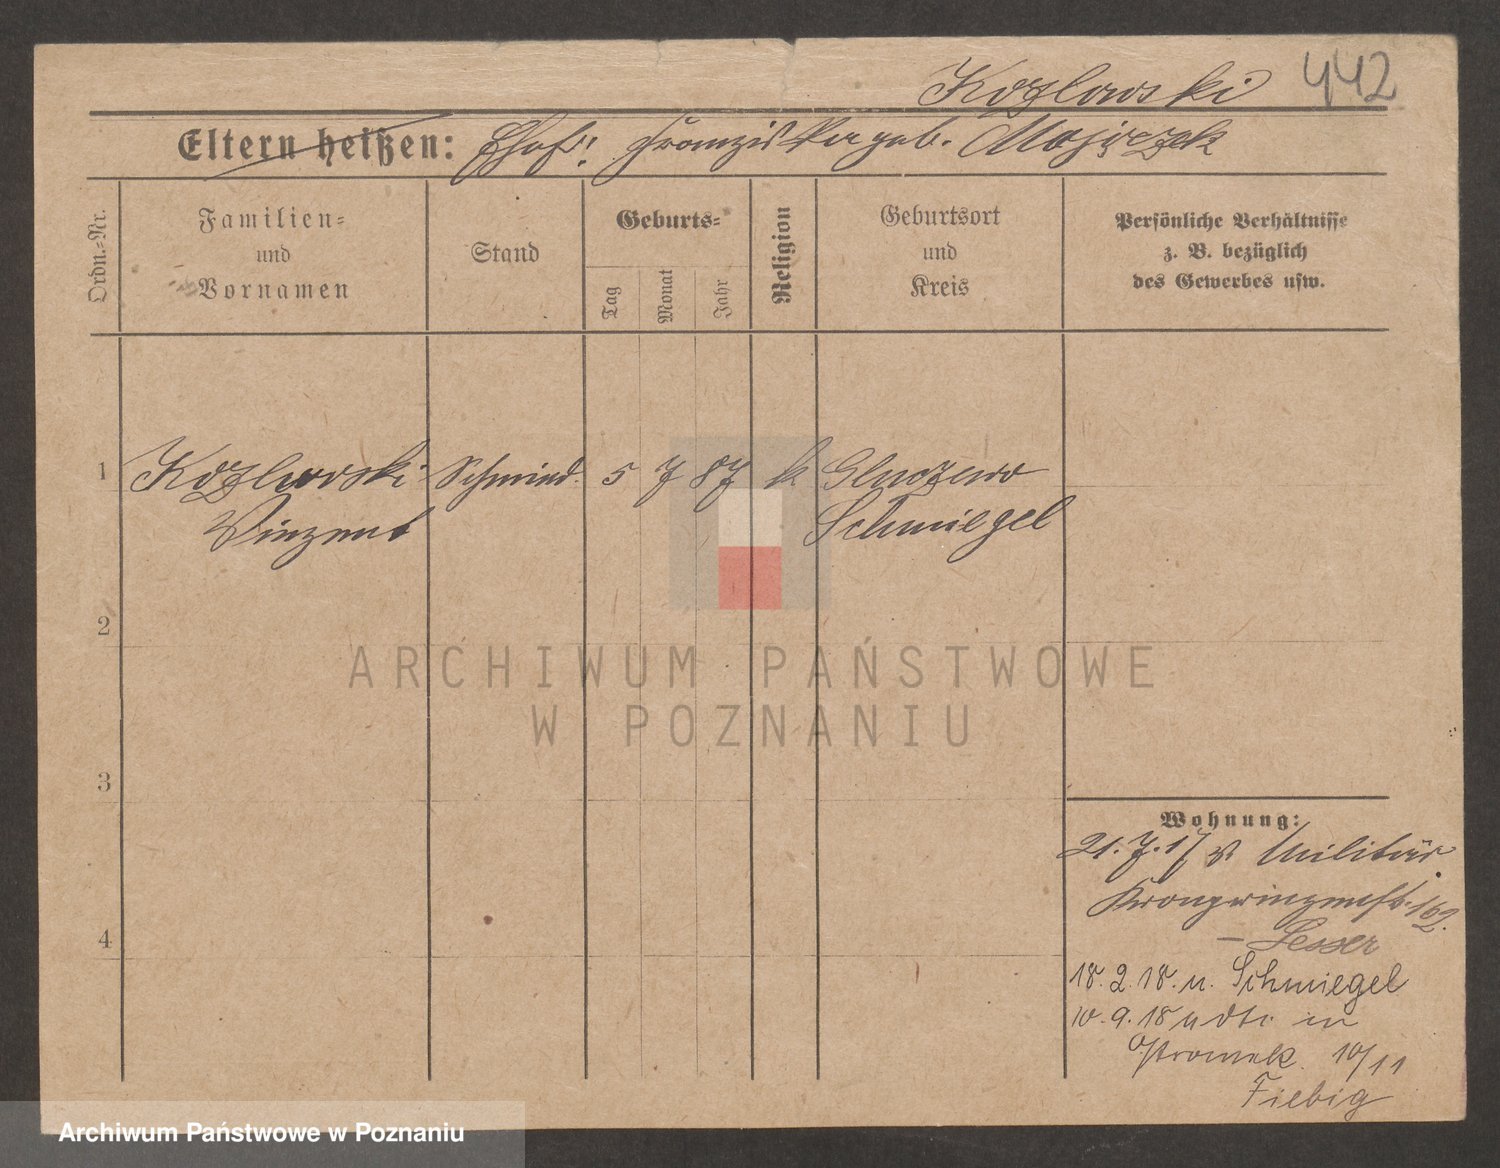 Kozlowski 442
Eltern heißen: Ehefr: Franziska geb. Majiczek
Ordn.-Nr.
Familien-
und
Vornamen
Stand
Geburts-
Tag
Monat
Jahr
Religion
Geburtsort
und
Kreis
Persönliche Verhältnisse
z. B. bezüglich
des Gewerbes usw.
1 Kozlowski Schmied. 5 7 87 k Gluczewo
Vinzent Schmiegel
2
3
4
Wohnung:
21.7.17 v Militär
Kronprinzenstr. 162.
– Lesser
18.2.18. n. Schmiegel
10.9.18 in
10/11
Fiebig
ARCHIWUM PAŃSTWOWE
W POZNANIU
Archiwum Państwowe w Poznaniu